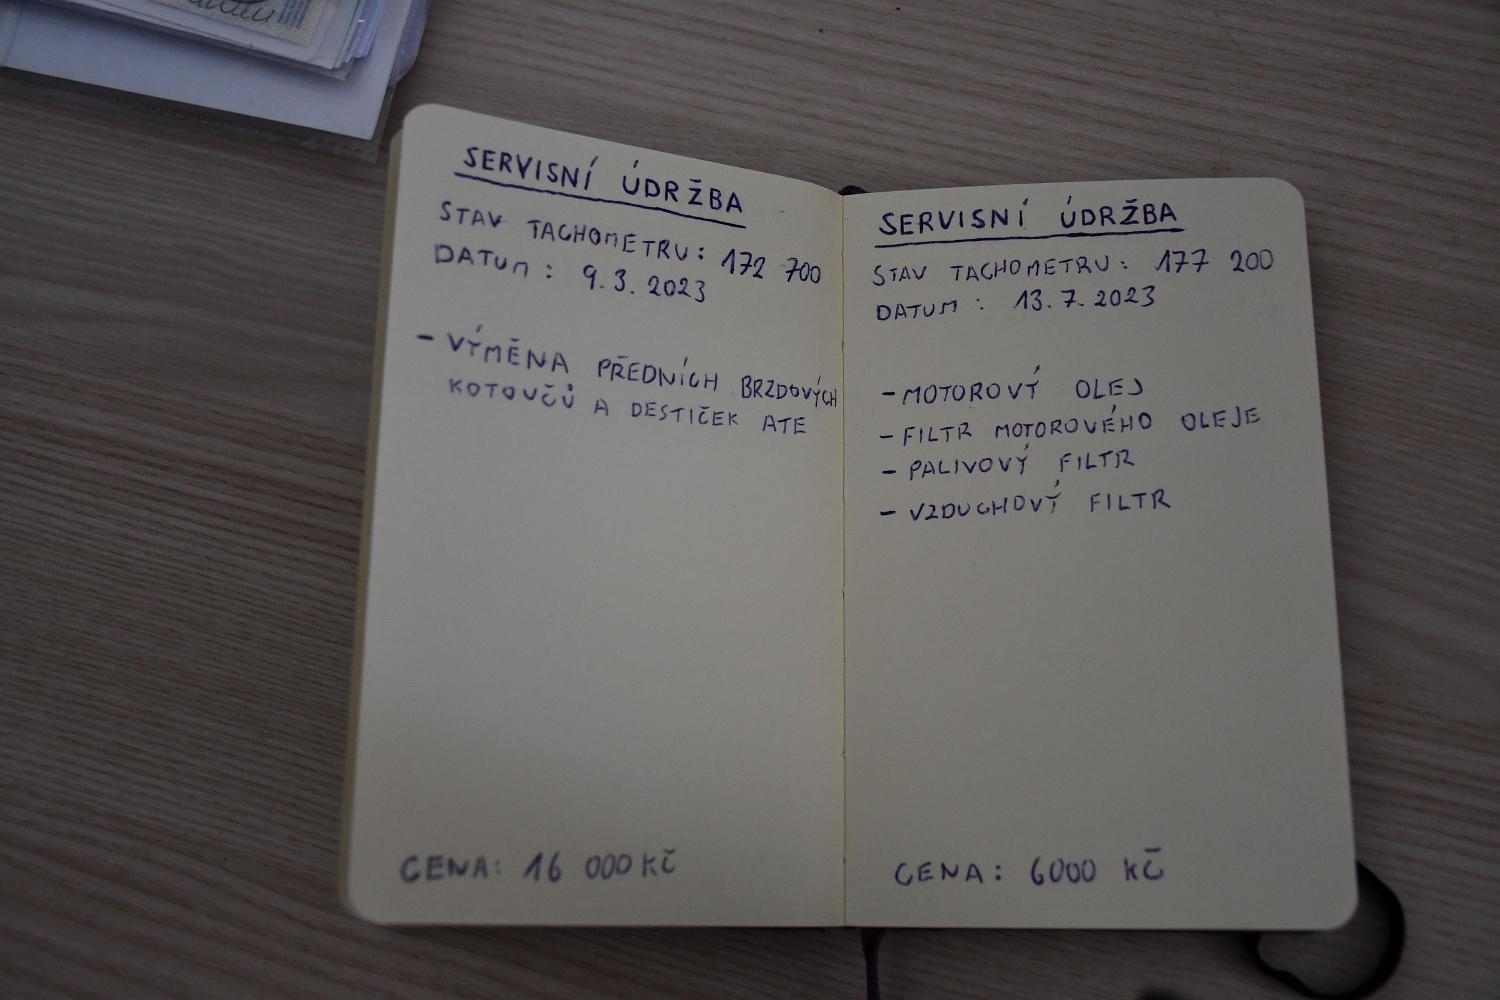 SERVISNÍ ÚDRŽBA
STAV TACHOMETRU: 172 700
DATUM: 9.3.2023
- VÝMĚNA PŘEDNÍCH BRZDOVÝCH
KOTOUČŮ A DESTIČEK ATE
CENA: 16 000 KČ
SERVISNÍ ÚDRŽBA
STAV TACHOMETRU: 177 200
DATUM: 13.7.2023
- MOTOROVÝ OLEJ
- FILTR MOTOROVÉHO OLEJE
- PALIVOVÝ FILTR
- VZDUCHOVÝ FILTR
CENA: 6000 KČ